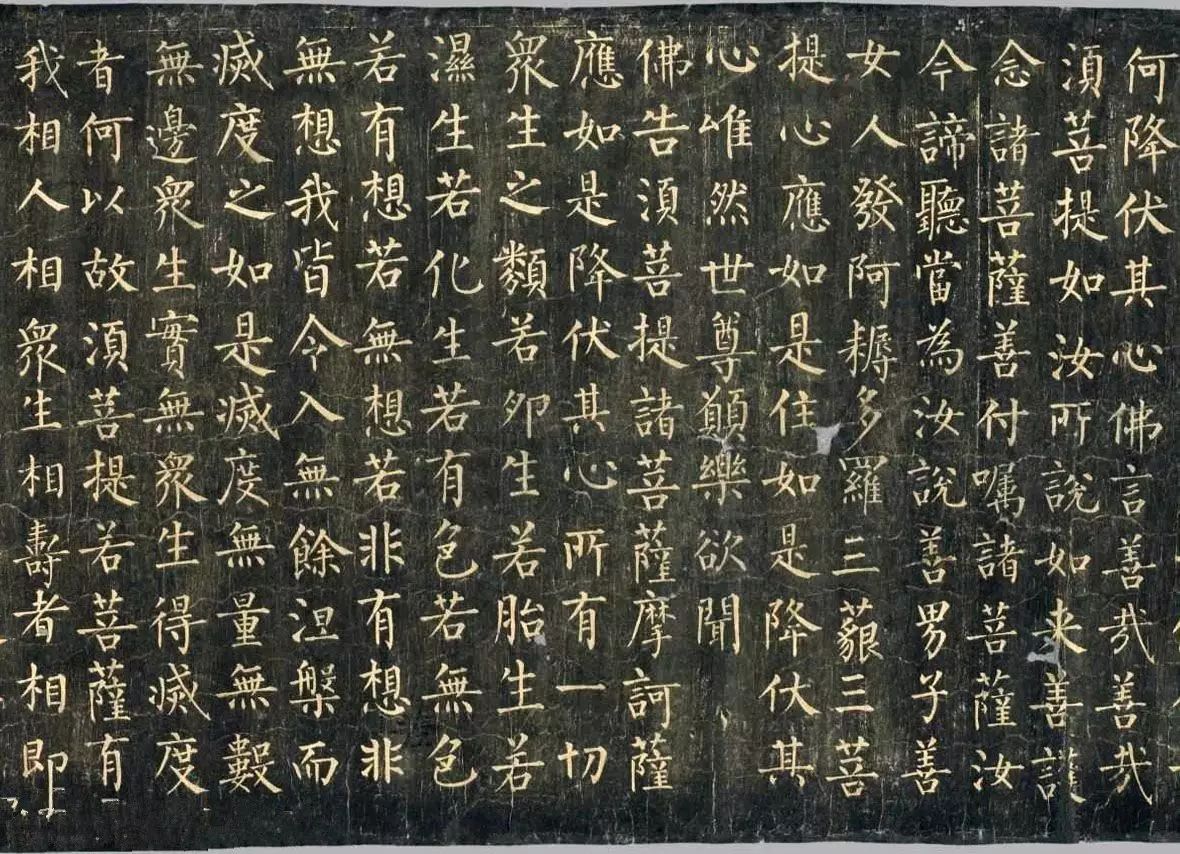 何降伏其心佛言善哉善哉
須菩提如汝所說如来善護
念諸菩薩善付嘱諸菩薩汝
今諦聽當為汝說善男子善
女人發阿耨多羅三藐三菩
提心應如是住如是降伏其
心唯然世尊願樂欲聞
佛告須菩提諸菩薩摩訶薩
應如是降伏其心所有一切
衆生之類若卵生若胎生若
濕生若化生若有色若無色
若有想若無想若非有想非
無想我皆令入無餘涅槃而
滅度之如是滅度無量無數
無邊衆生實無衆生得滅度
者何以故須菩提若菩薩有
我相人相衆生相壽者相即